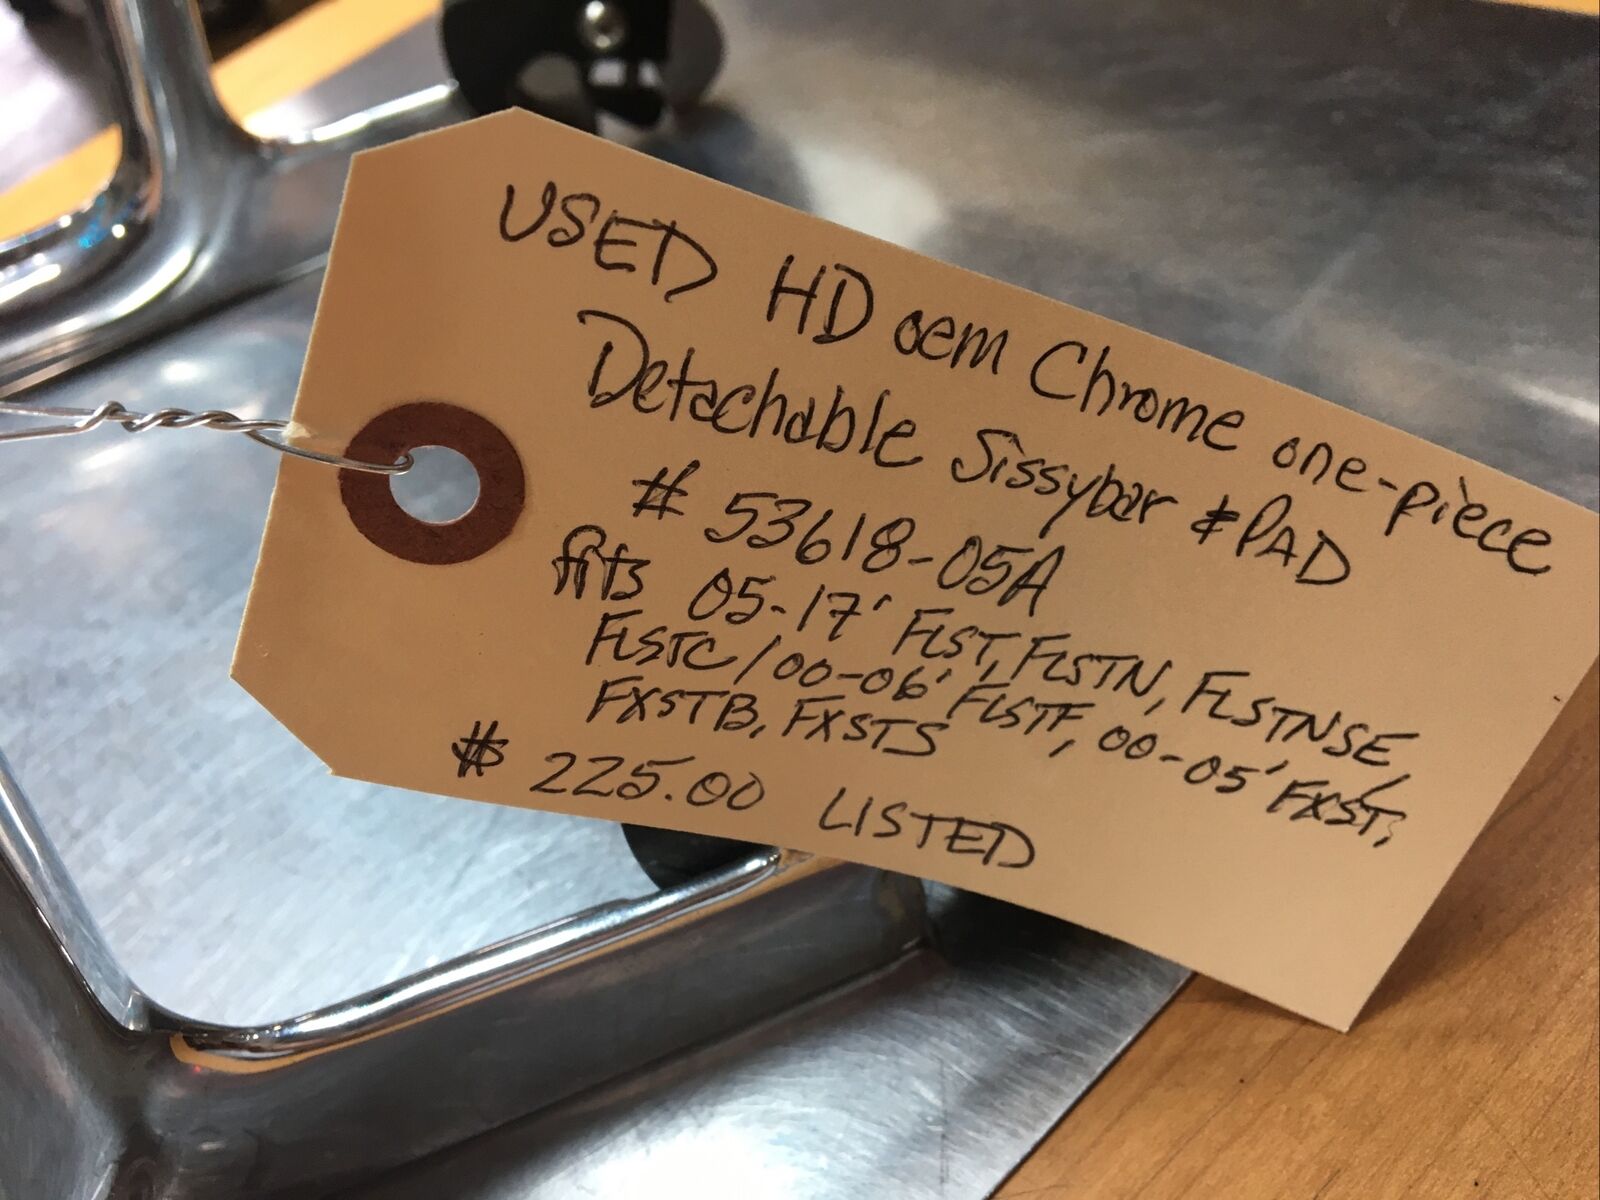 USED HD oem Chrome one-piece
Detachable Sissybar & PAD
# 53618-05A
fits 05-17' FLST, FLSTN, FLSTNSE,
FLSTC/00-06' FLSTF, 00-05' FXST,
FXSTB, FXSTS
$ 225.00 LISTED